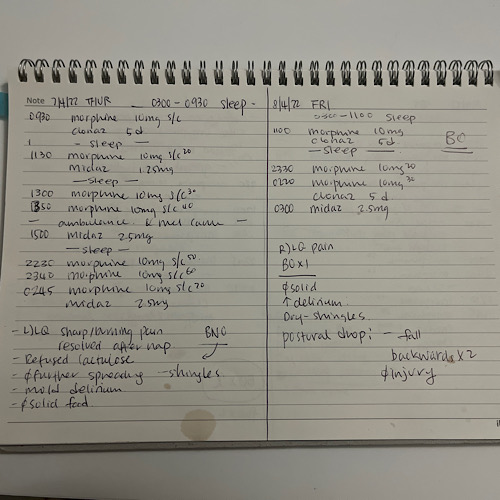 Note 7/4/22 THUR — 0300 - 0930 sleep -
0930 morphine 10mg s/c
clonaz 5d
- sleep -
1130 morphine 10mg s/c 20
midaz 1.25mg
- sleep -
1300 morphine 10mg s/c 30
1350 morphine 10mg s/c 40
- ambulance. & met came -
1500 midaz 2.5mg
- sleep -
2230 morphine 10mg s/c 50
2340 morphine 10mg s/c 60
0245 morphine 10mg s/c 70
midaz 2.5mg
- L)LQ sharp/burning pain
resolved after nap BNO
- Refused lactulose
- ϕ further spreading - shingles
- mild delirium
- ϕ solid food
8/4/22 FRI
0300 - 1100 sleep
1100 morphine 10mg
clonaz 5d BO
- sleep -
2330 morphine 10mg 20
0220 morphine 10mg 30
clonaz 5d
0300 midaz 2.5mg
R)LQ pain
BO x 1
ϕ solid
↑ delirium
Dry - shingles
postural drop: - fall
backwards x 2
ϕ injury